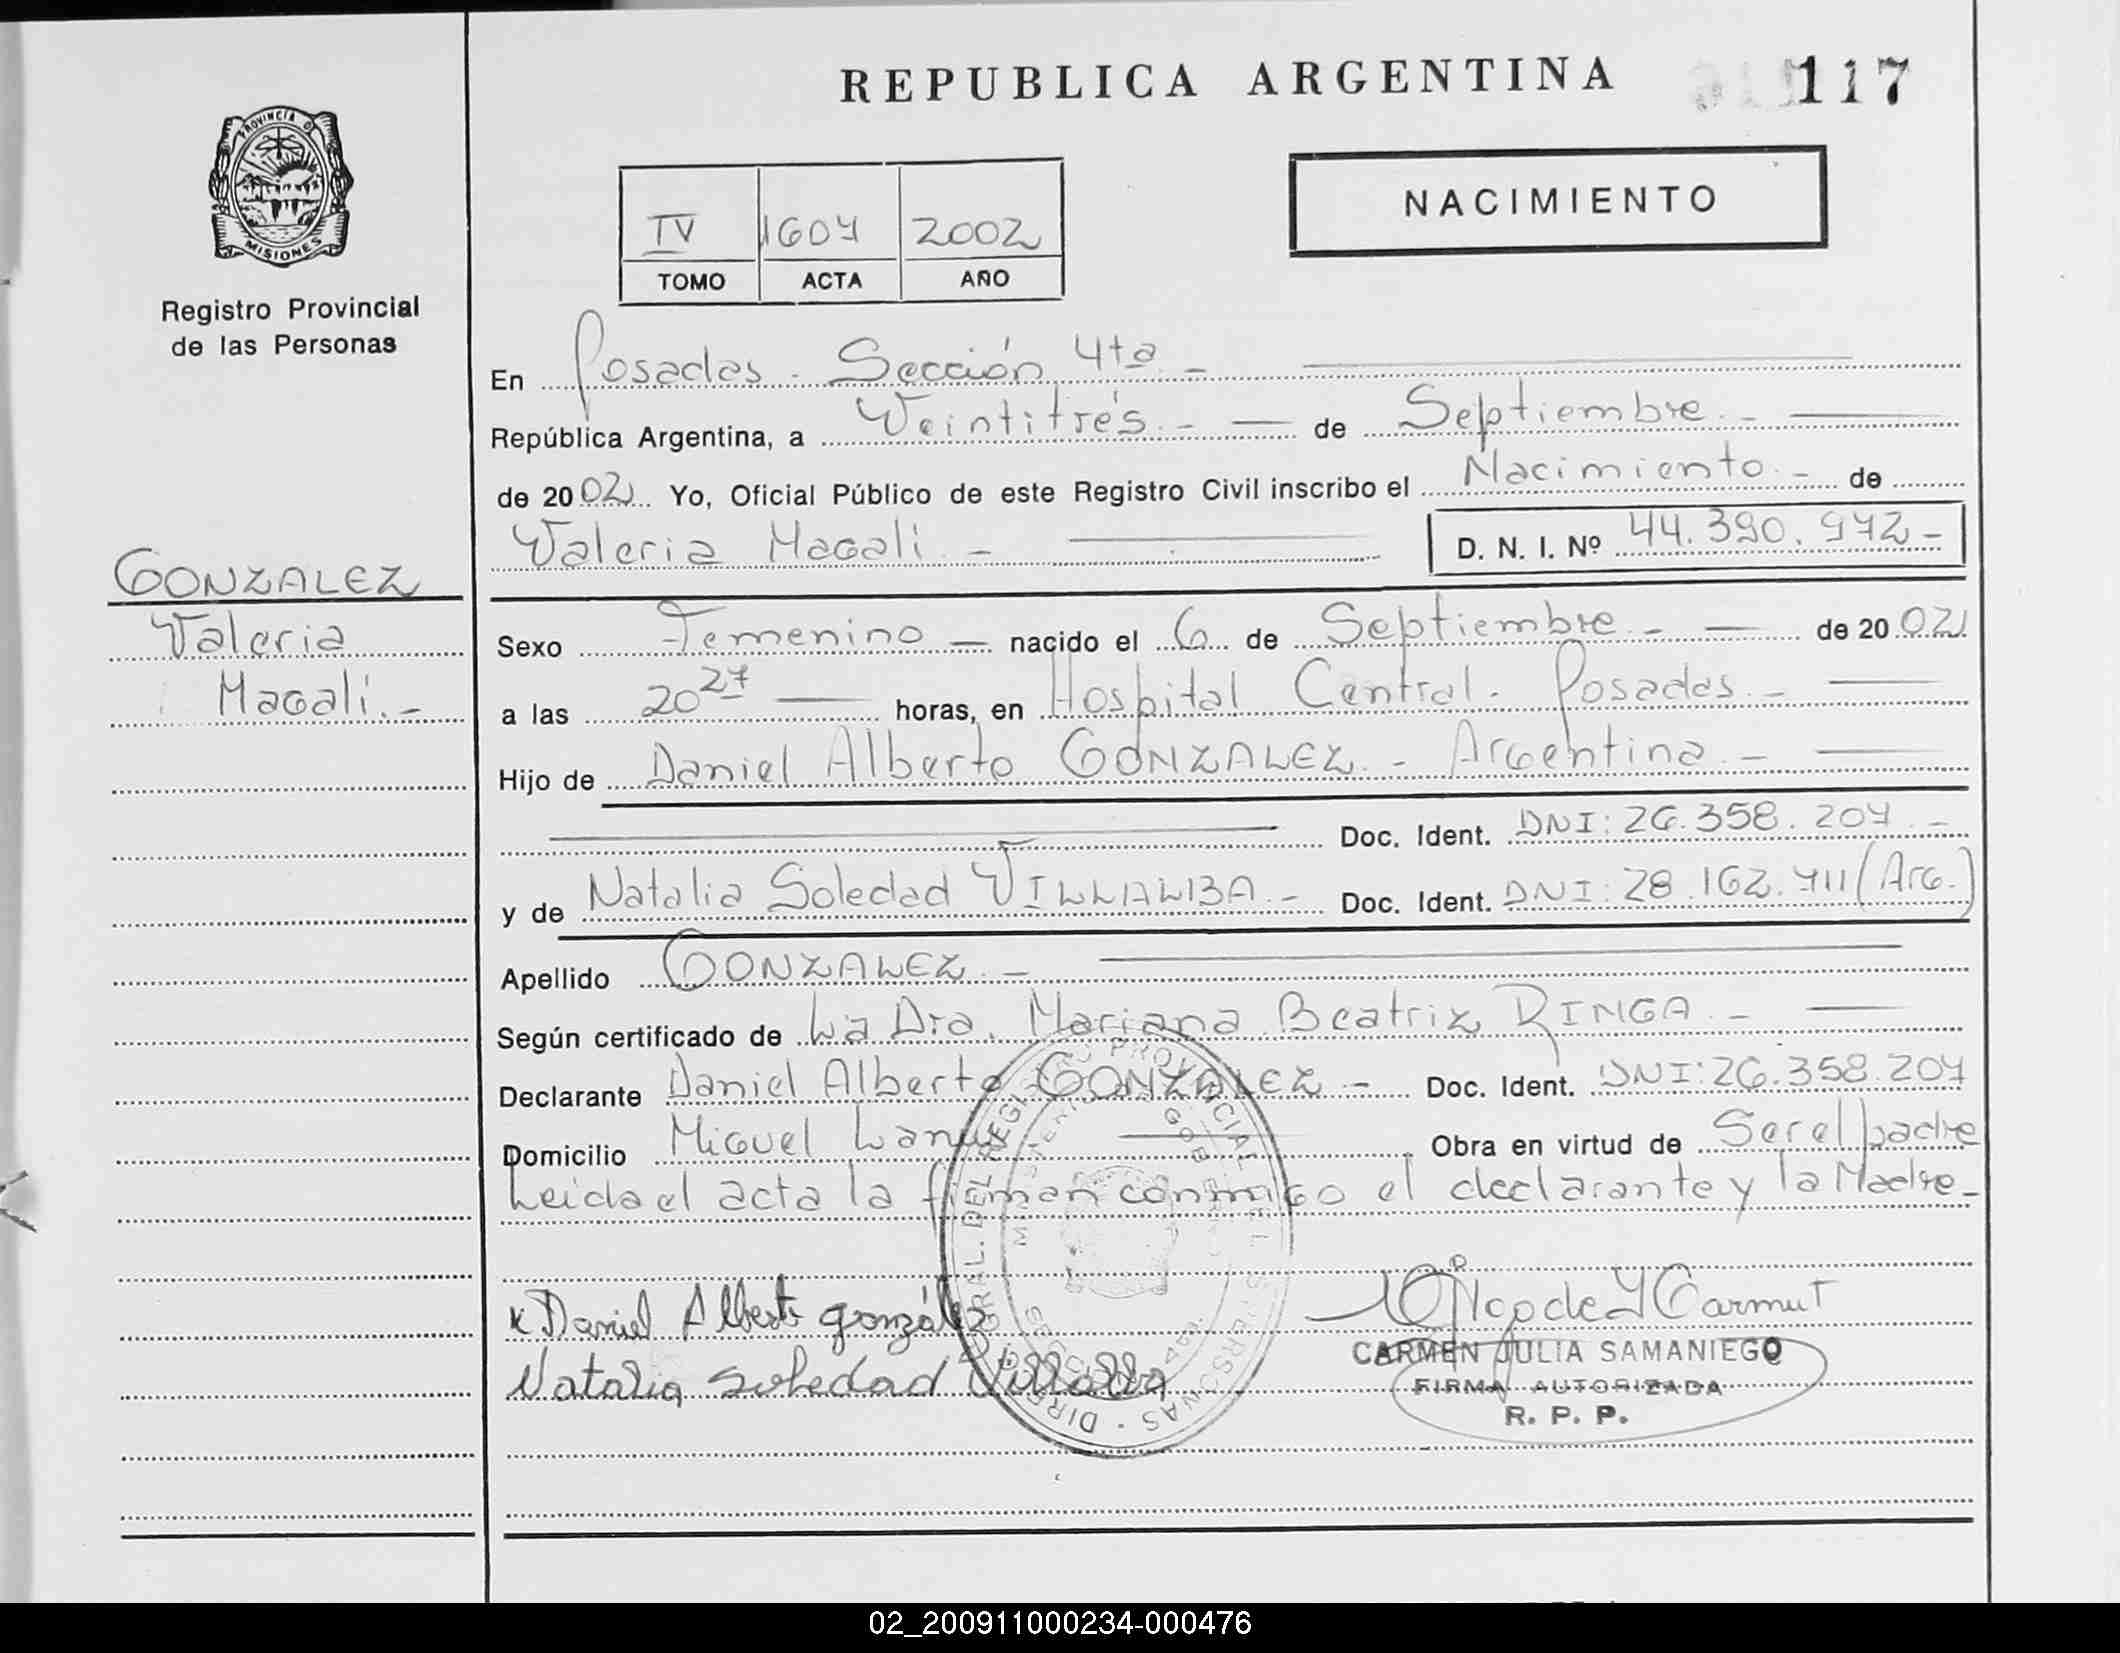 REPUBLICA ARGENTINA 117
PROVINCIA D
MISIONES
NACIMIENTO
IV 1604 2002
TOMO ACTA AÑO
Registro Provincial
de las Personas
En Posadas. Sección 4ta. -
República Argentina, a Veintitrés. - de Septiembre. -
de 2002. Yo, Oficial Público de este Registro Civil inscribo el Nacimiento. - de
Valeria Magali. - D. N. I. Nº 44.390.942-
GONZALEZ
Valeria
Magali. -
Sexo Femenino - nacido el 6 de Septiembre. - de 2002
a las 20 27 horas, en Hospital Central. Posadas. -
Hijo de Daniel Alberto GONZALEZ. - Argentina. -
Doc. Ident. DNI: 26.358.204. -
y de Natalia Soledad VILLALBA. - Doc. Ident. DNI: 28.162.411 (Arg.)
Apellido GONZALEZ. -
Según certificado de La Dra. Mariana Beatriz RINGA. -
Declarante Daniel Alberto GONZALEZ - Doc. Ident. DNI: 26.358.204
Domicilio Miguel Lanus. - Obra en virtud de Ser el padre
Leida el acta la firman conmigo el declarante y la Madre-
x Daniel Alberto gonzález
Natalia Soledad Villalba
CARMEN JULIA SAMANIEGO
FIRMA AUTORIZADA
R. P. P.
DEL REGISTRO PROVINCIAL
PERSONAS
02_200911000234-000476